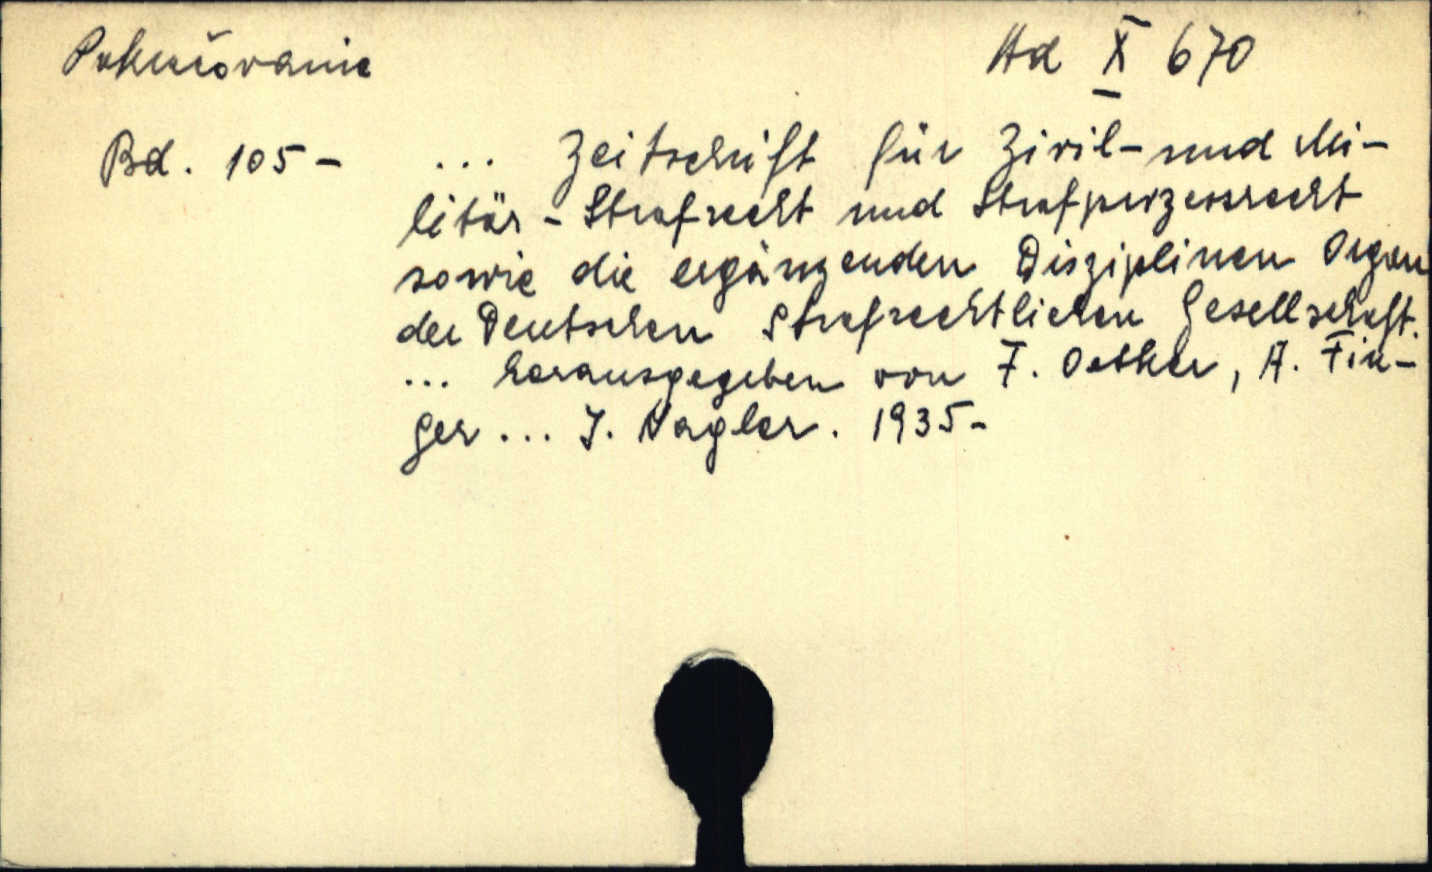 Pokračovanie Ad X 670
Bd. 105 - ... Zeitschrift für Zivil- und Mi-
litär-Strafrecht und Strafprozessrecht
sowie die ergänzenden Disziplinen Organ
der Deutschen Strafrechtlichen Gesellschaft.
... herausgegeben von F. Oetker, A. Fin-
ger ... J. Nagler. 1935-